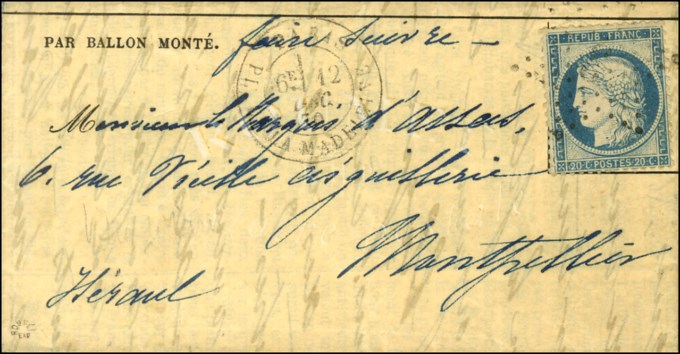 PAR BALLON MONTÉ. faire suivre —
REPUB. FRANC.
20 C. POSTES 20 C.
PARIS
6E 12
DEC.
PL. DE LA MADELEINE
Monsieur le Marquis d'assas,
6, rue Vieille aiguillerie
Montpellier
Hérault